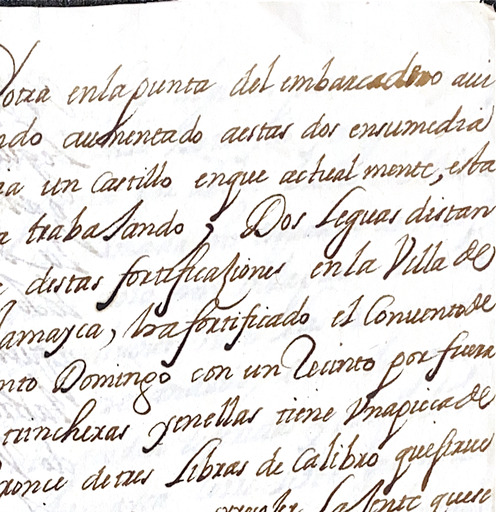 otra enla punta del embarcadero aui
ndo aumentado aestas dos ensumedia
ia un Castillo enque actual mente, esta
a trabajando, Dos leguas distan
e destas fortificaziones enla Villa de
Jamayca, ha fortificado el Conuento de
nto Domingo con un Recinto por fuera
trincheras yenellas tiene Vnapieca de
ronce de tres libras de Calibro que
la Gente quese